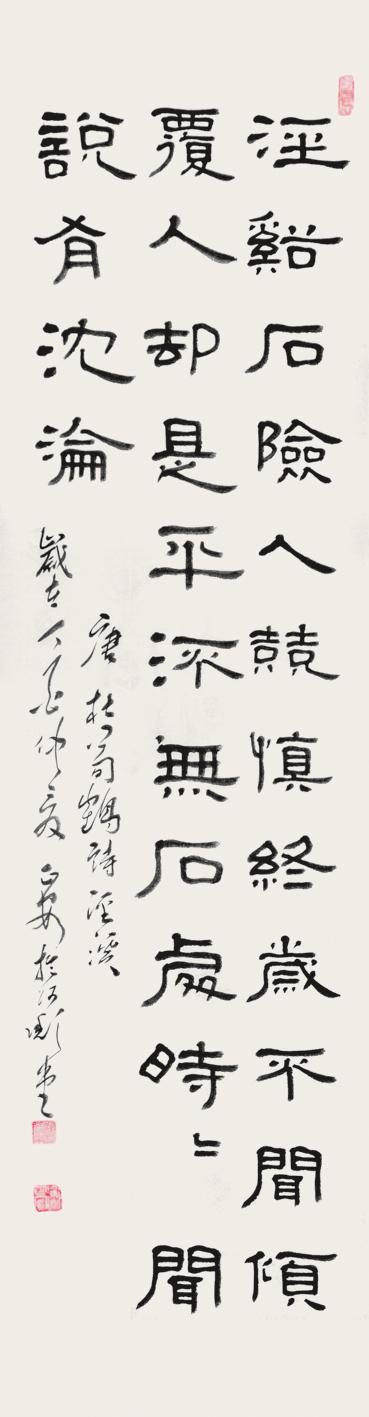 涇谿石險人兢慎終歲不聞傾
覆人却是平流無石處時〻聞
說有沈淪
唐杜荀鶴詩涇溪
歲在仲夏於堂